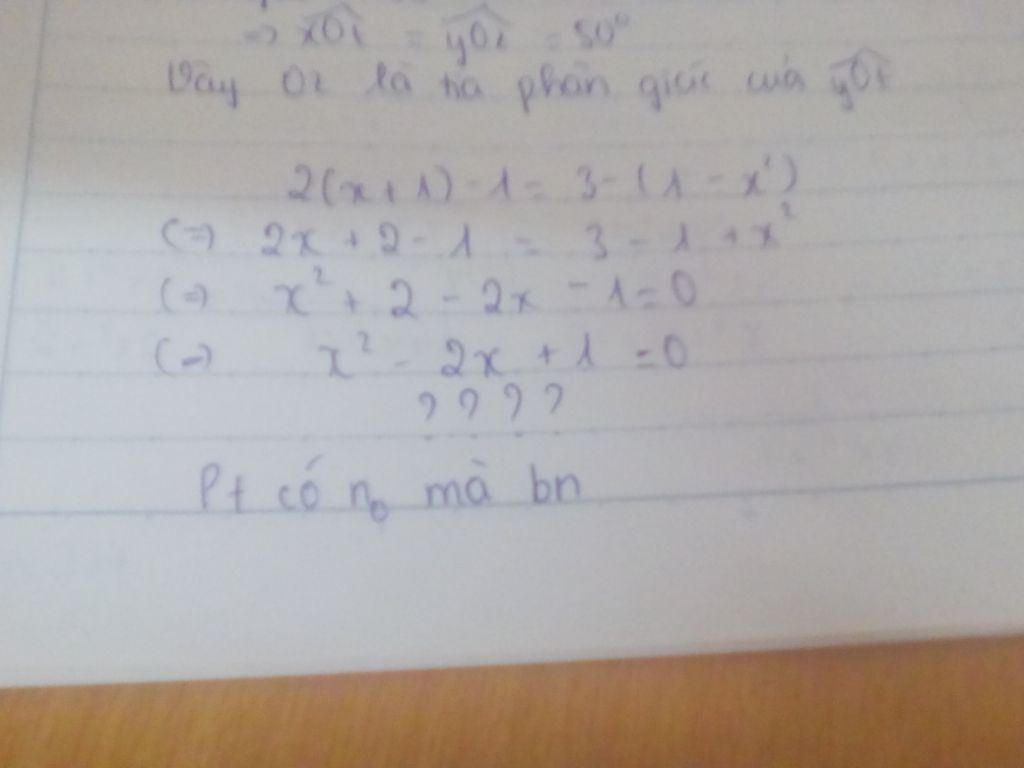 => xOz = yOz = 50°
Vậy Oz là tia phân giác của yOt
2(x+1) - 1 = 3 - (1 - x²)
(=) 2x + 2 - 1 = 3 - 1 + x²
(=) x² + 2 - 2x - 1 = 0
(=) x² - 2x + 1 = 0
? ? ? ?
Pt có n₀ mà bn